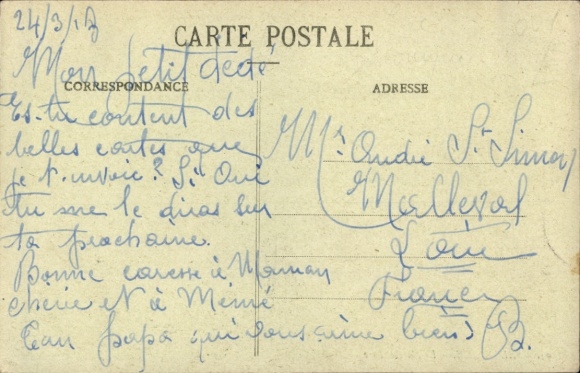 24/3/17
CARTE POSTALE
CORRESPONDANCE
Mon petit dédé
Es-tu content des
belles cartes que
je t'envoie? Si Oui
tu me le diras sur
ta prochaine.
Bonne caresse à Maman
chérie et à Mémé
Ton papa qui vous aime bien
B.
ADRESSE
Mr. André St. Simon
Malleval
Loire
France